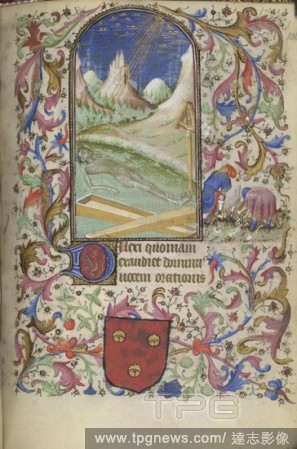 Dilexi quoniam
exaudiet dominus
uocem orationis
TPG
www.tpgnews.com/ 達志影像